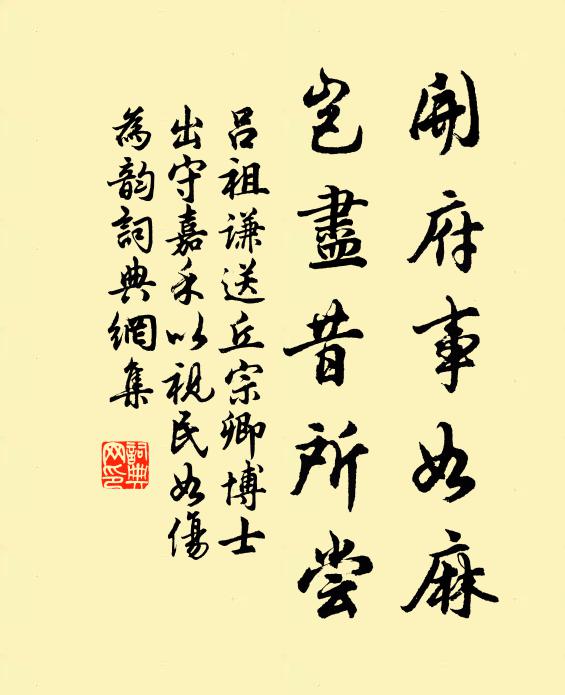 開府事如麻
豈盡昔所嘗
呂祖謙送丘宗卿博士
出守嘉禾以視民如傷
為韵詞典網集
詞典
网印